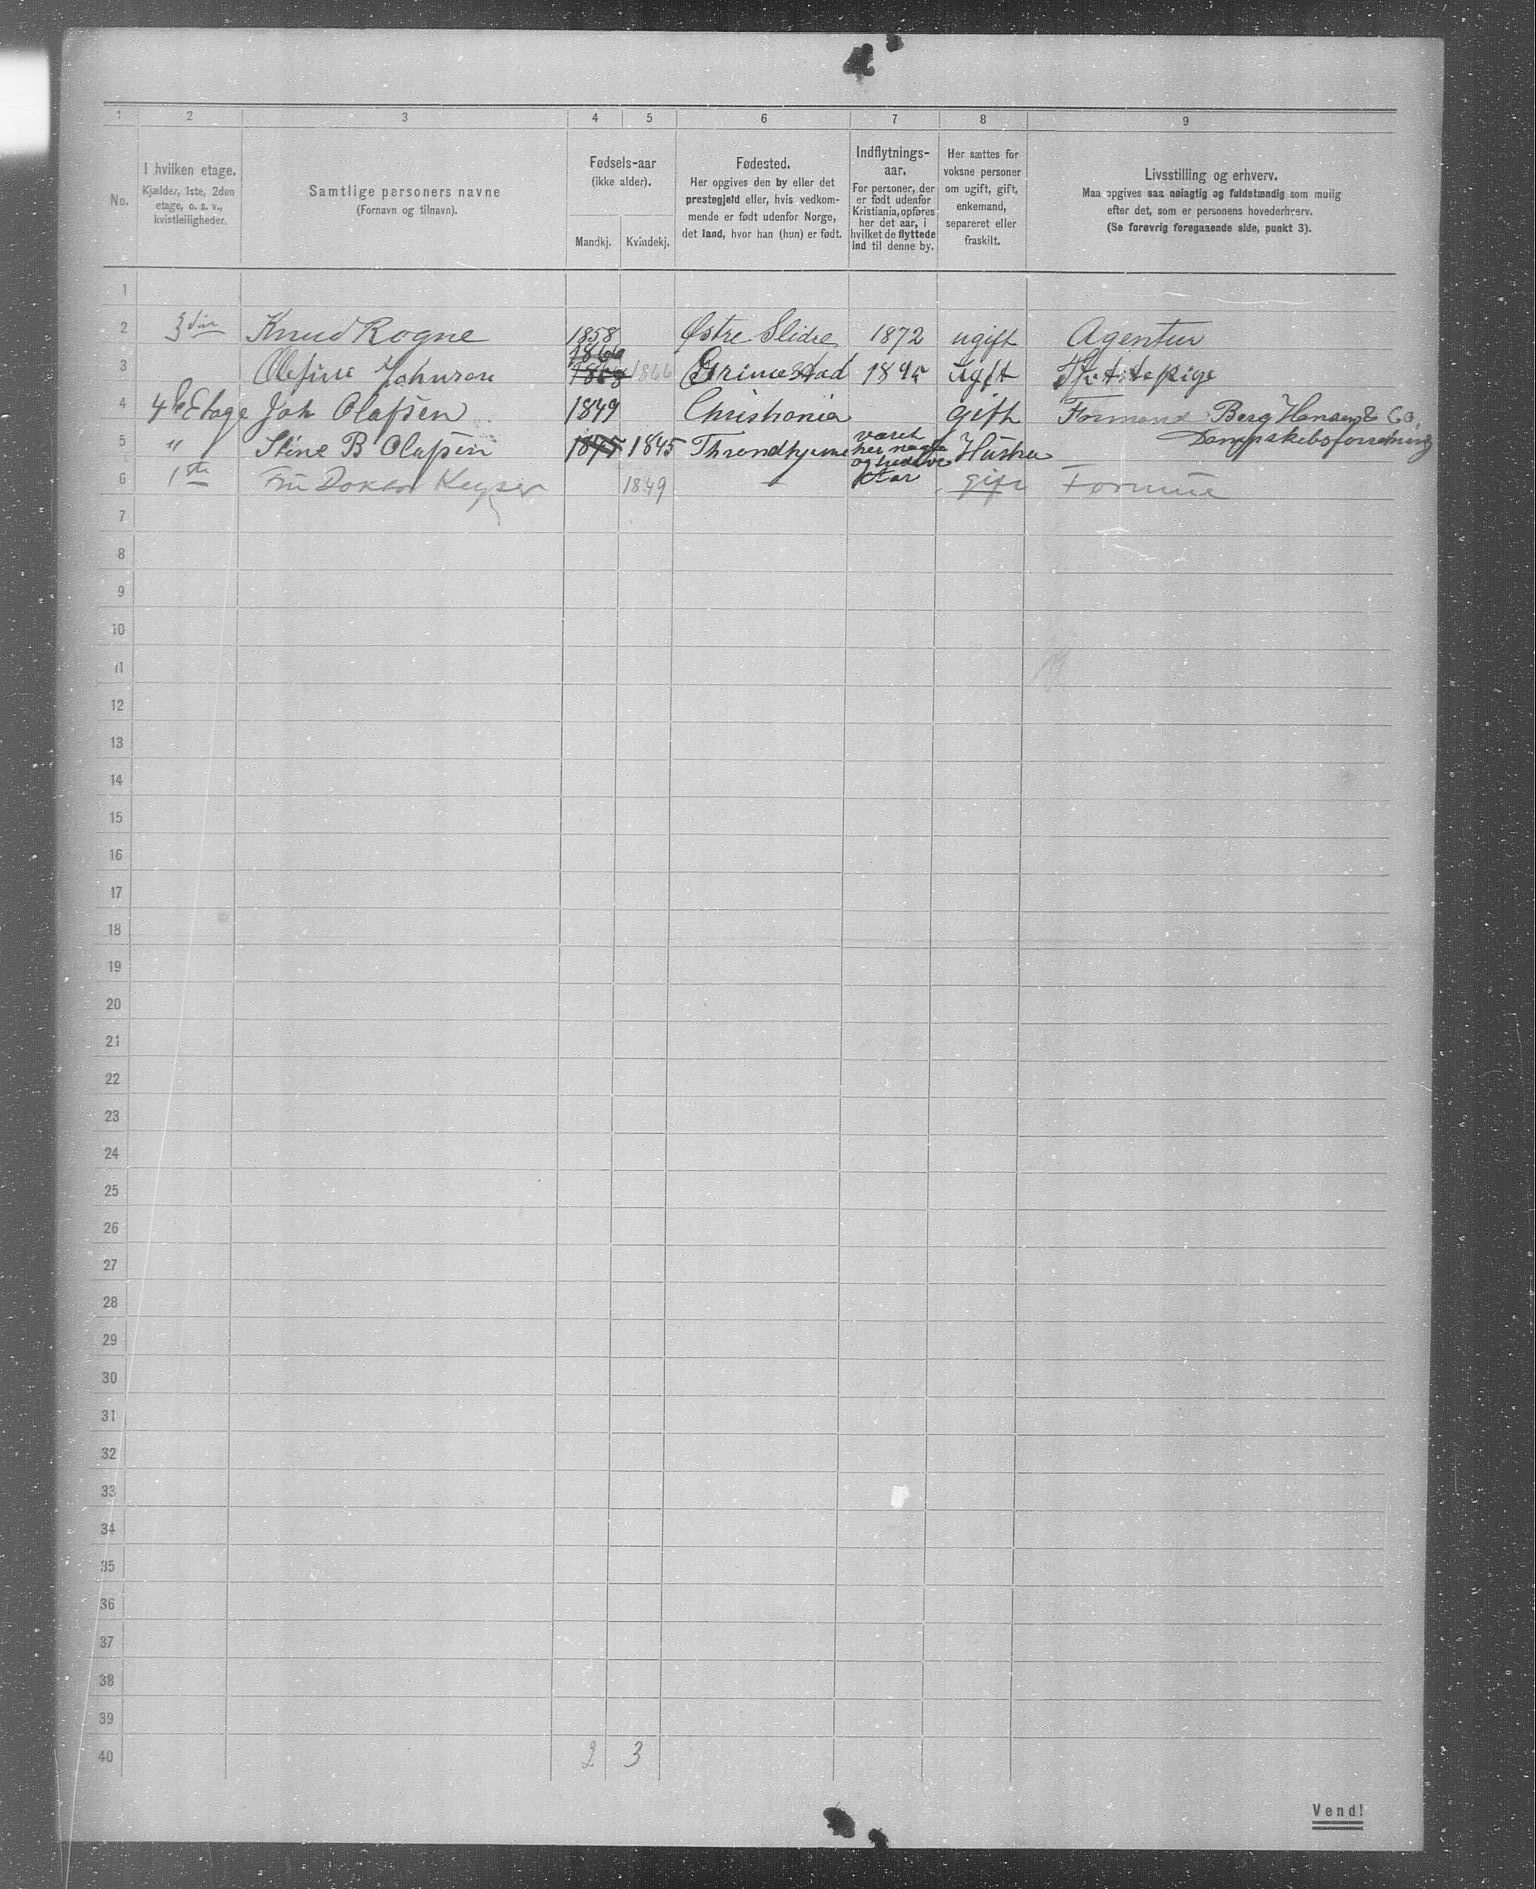 1 2 3 4 5 6 7 8 9
No.
I hvilken etage.
Kjælder, 1ste, 2den
etage, o. s. v.,
kvistleiligheder.
Samtlige personers navne
(Fornavn og tilnavn).
Fødsels-aar
(ikke alder).
Mandkj. Kvindekj.
Fødested.
Her opgives den by eller det
prestegjeld eller, hvis vedkom-
mende er født udenfor Norge,
det land, hvor han (hun) er født.
Indflytnings-
aar.
For personer, der
er født udenfor
Kristiania, opføres
her det aar, i
hvilket de flyttede
ind til denne by.
Her sættes for
voksne personer
om ugift, gift,
enkemand,
separeret eller
fraskilt.
Livsstilling og erhverv.
Maa opgives saa nøiagtig og fuldstændig som mulig
efter det, som er personens hovederhverv.
(Se forøvrig foregaaende side, punkt 3).
1
2 3die Knud Rogne 1858 Østre Slidre 1872 ugift Agentur
3 Olefine Johnsen 1866 1868 1866 Grimestad 1895 ugift
4 4de Etage Joh Olafsen 1849 Christiania gift Formand Berg Hansen & Co,
Dampskebsforretning
5 " Stine B Olafsen 1875 1845 Throndhjem været
her nogle
og tredive
Aar Hustru
6 1ste Fru Doktor Keyser 1849 gift Formue
7
8
9
10
11
12
13
14
15
16
17
18
19
20
21
22
23
24
25
26
27
28
29
30
31
32
33
34
35
36
37
38
39
40 2 3
Vend!